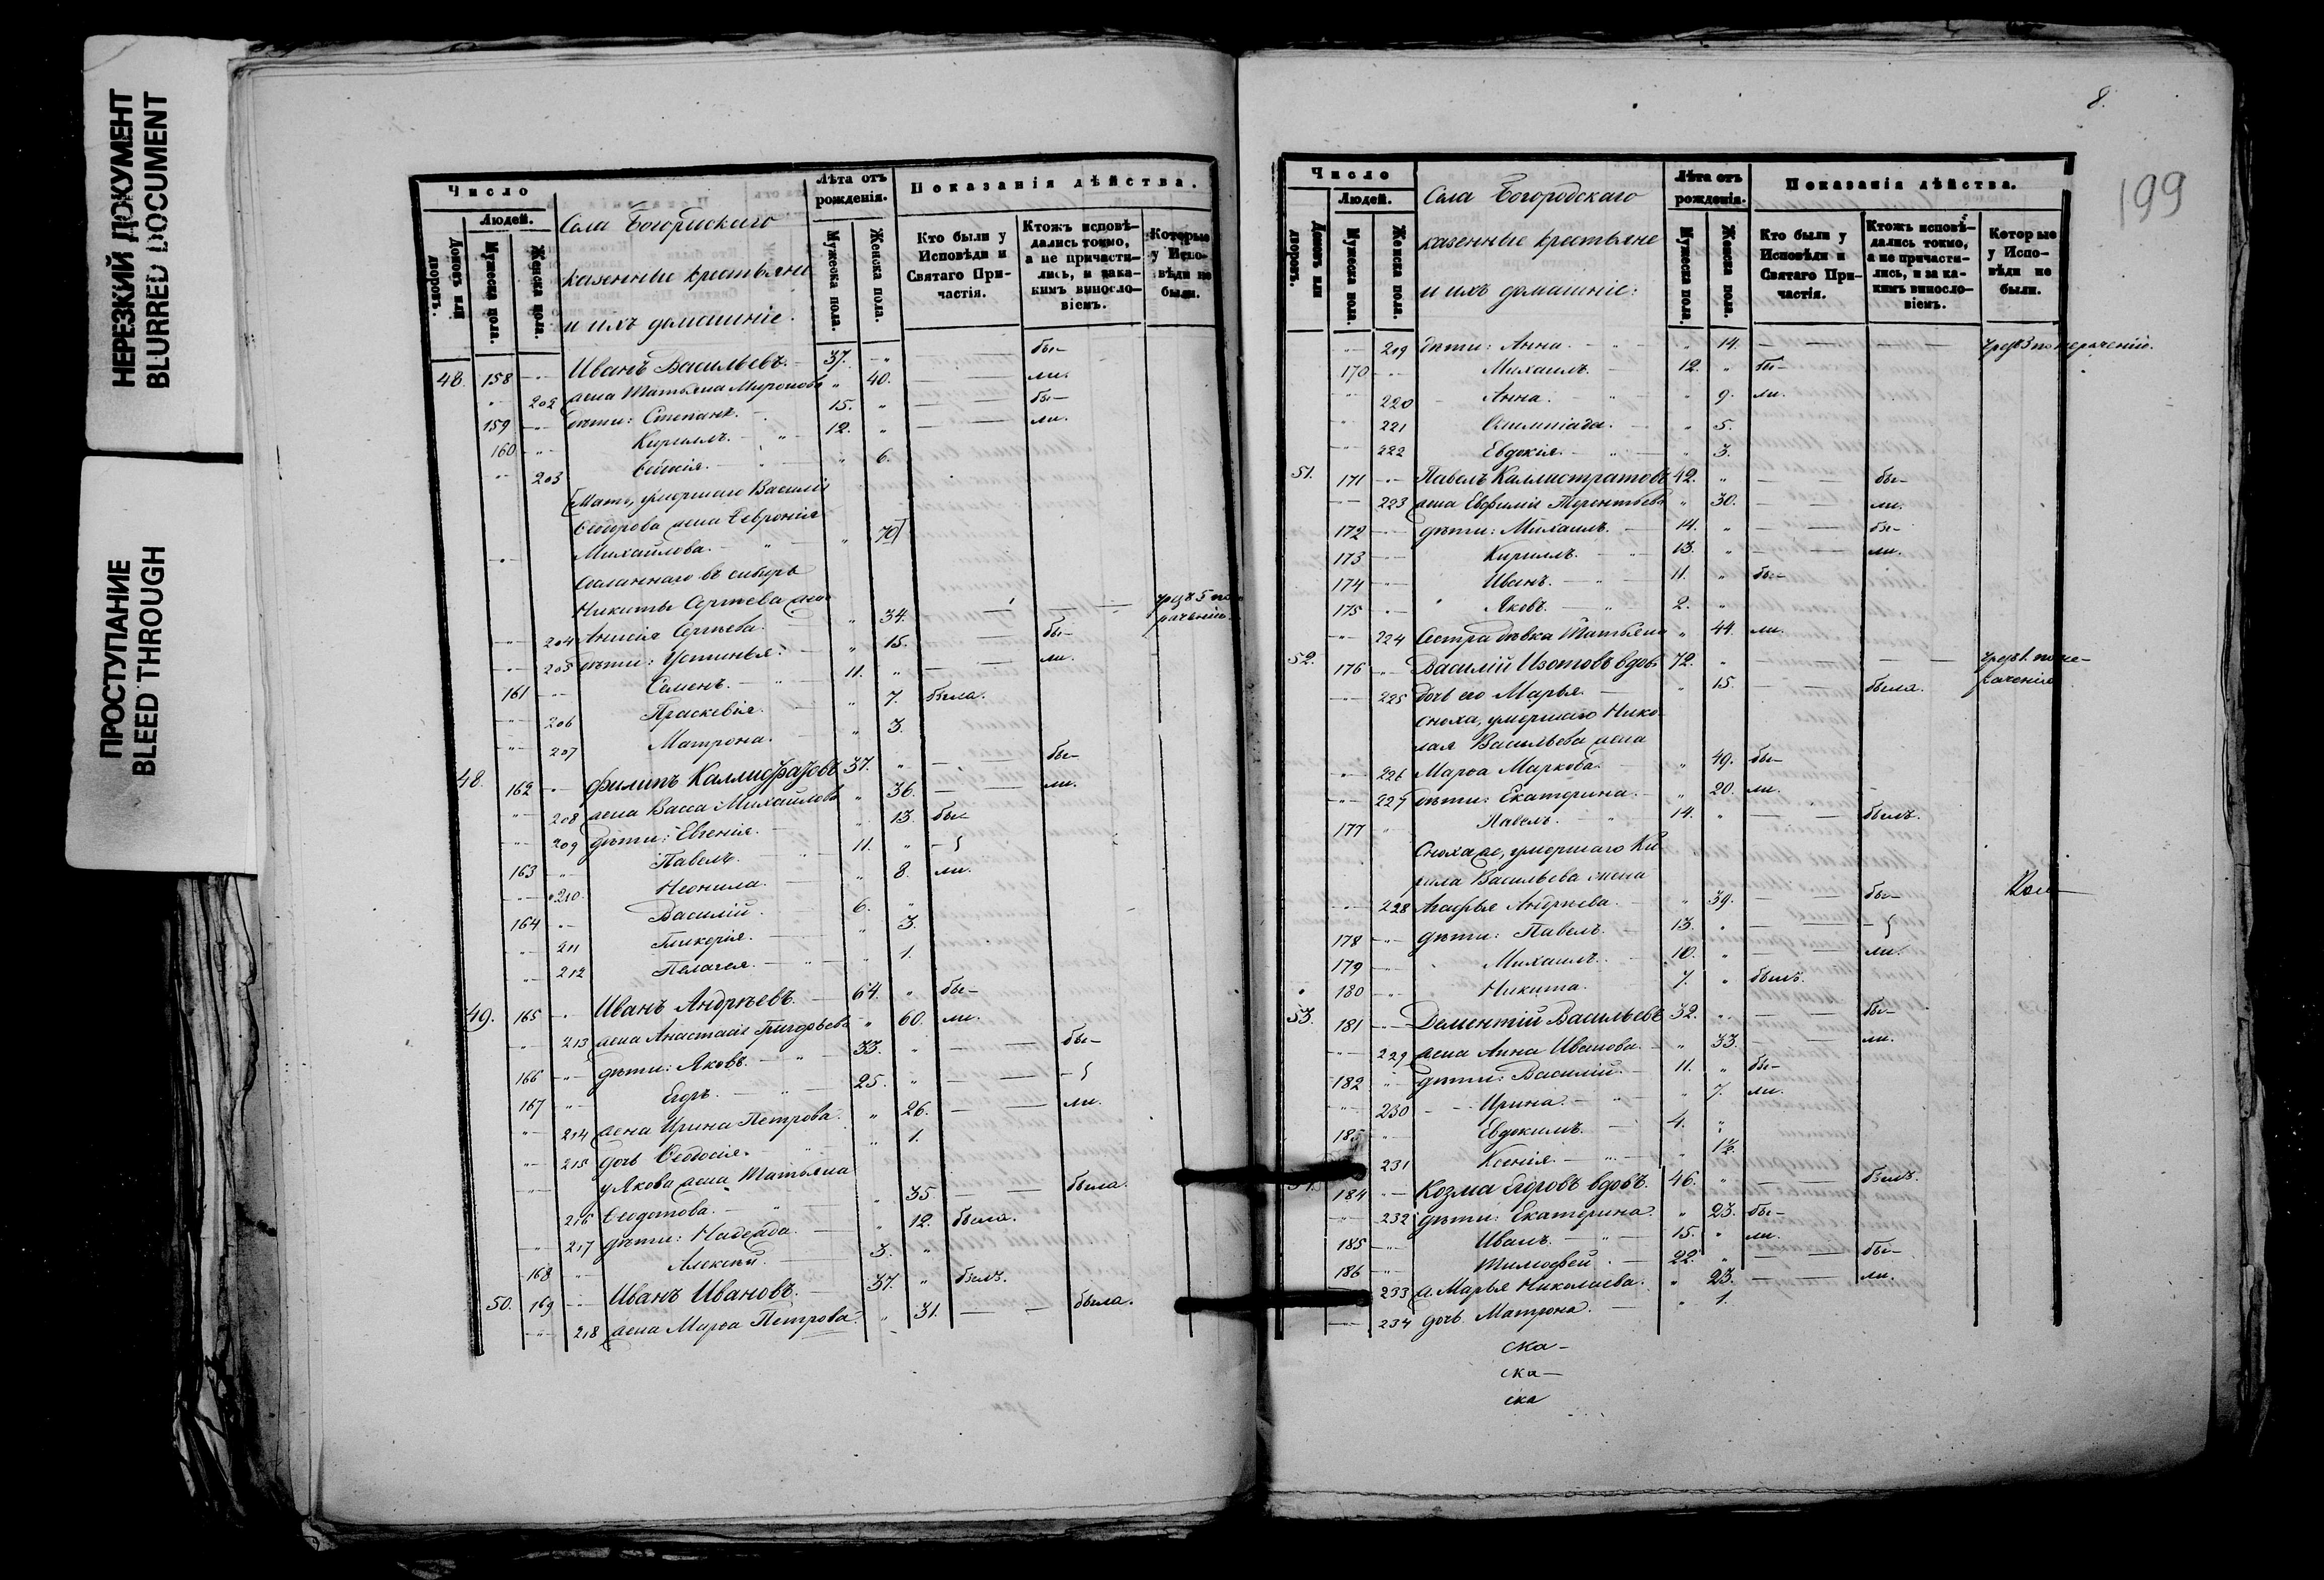 НЕРЕЗКИЙ ДОКУМЕНТ
BLURRED DOCUMENT
ПРОСТУПАНИЕ
BLEED THROUGH
Число
Людей.
Домовъ или дворовъ.
Мужеска пола.
Женска пола.
Села Богородскаго
казенные крестьяне
и ихъ домашніе.
Лѣта отъ рожденія.
Мужеска пола.
Женска пола.
Показанія дѣйства.
Кто были у Исповѣди и Святаго Причастія.
Ктожъ исповѣдались токмо, а не причастились, и за какимъ винословіемъ.
Которые у Исповѣди не были.
48. 158 Иванъ Васильевъ. 37. бы-
202 жена Татьяна Миронова 40. ли.
159 дѣти: Степанъ. 15. бы-
160 Кириллъ. 12. ли.
203 6.
[Мать, умершаго Василія
Ѳеодорова жена Февронія
Михайлова. 70]
Сосланнаго въ сибирь
Никиты Сергѣева жена
204 Анисія Сергѣева. 34.
205 дѣти: Устинья. 15. бы-
161 Семенъ. 11. ли.
206 Праскевія. 7. была.
207 Матрона. 3.
48. 162 Филипъ Каллистратовъ 37. бы-
208 жена Васса Михайлова 36. ли.
209 дѣти: Евгенія. 13. бы-
163 Павелъ. 11.
210 Неонила. 8. ли.
164 Василій. 6.
211 Гликерія. 3.
212 Пелагея. 1.
49. 165 Иванъ Андрѣевъ. 64. бы-
213 жена Анастасія Григорьева 60. ли.
166 дѣти: Яковъ. 33. бы-
167 Егоръ. 25.
214 жена Ирина Петрова. 26. ли.
215 дочь Ѳеодосія. 1.
у Якова жена Татьяна
216 Ѳеодотова. 35. была.
217 дѣти: Надежда. 12. была.
168 Алексѣй. 3.
50. 169 Иванъ Ивановъ. 37. былъ.
218 жена Марѳа Петрова. 31. была.
8.
199
Число
Людей.
Домовъ или дворовъ.
Мужеска пола.
Женска пола.
Села Богородскаго
казенные крестьяне
и ихъ домашніе:
Лѣта отъ рожденія.
Мужеска пола.
Женска пола.
Показанія дѣйства.
Кто были у Исповѣди и Святаго Причастія.
Ктожъ исповѣдались токмо, а не причастились, и за какимъ винословіемъ.
Которые у Исповѣди не были.
219 дѣти: Анна. 14.
170 Михаилъ. 12. бы-
220 Анна. 9. ли.
221 Олимпіада. 5.
222 Евдокія. 3.
51. 171 Павелъ Каллистратовъ 42. бы-
223 жена Евфимія Терентьева 30. ли.
172 дѣти: Михаилъ. 14. бы-
173 Кириллъ. 13. ли.
174 Иванъ. 11. бы-
175 Яковъ. 2.
224 Сестра дѣвка Татьяна 44. ли.
52. 176 Василій Изотовъ вдовъ 72.
225 дочь его Марья. 15. была.
сноха, умершаго Нико-
лая Васильева жена
226 Марѳа Маркова. 49. бы-
227 дѣти: Екатерина. 20. ли.
177 Павелъ. 14. былъ.
Сноха же, умершаго Ки-
рила Васильева жена
228 Агафья Андрѣева. 39. бы-
178 дѣти: Павелъ. 13.
179 Михаилъ. 10. ли.
180 Никита. 7. былъ.
53. 181 Дементій Васильевъ 32. бы-
229 жена Анна Иванова. 33. ли.
182 дѣти: Василій. 11. бы-
230 Ирина. 7. ли.
183 Евдокимъ. 4.
231 Ксенія. 1½
184 Козма Егоровъ вдовъ. 46. былъ.
232 дѣти: Екатерина. 23. бы-
185 Иванъ. 15. ли.
186 Тимоѳей. 22. бы-
233 ж. Марья Николаева. 23. ли.
234 дочь Матрона. 1.
ска-
ска-
ска